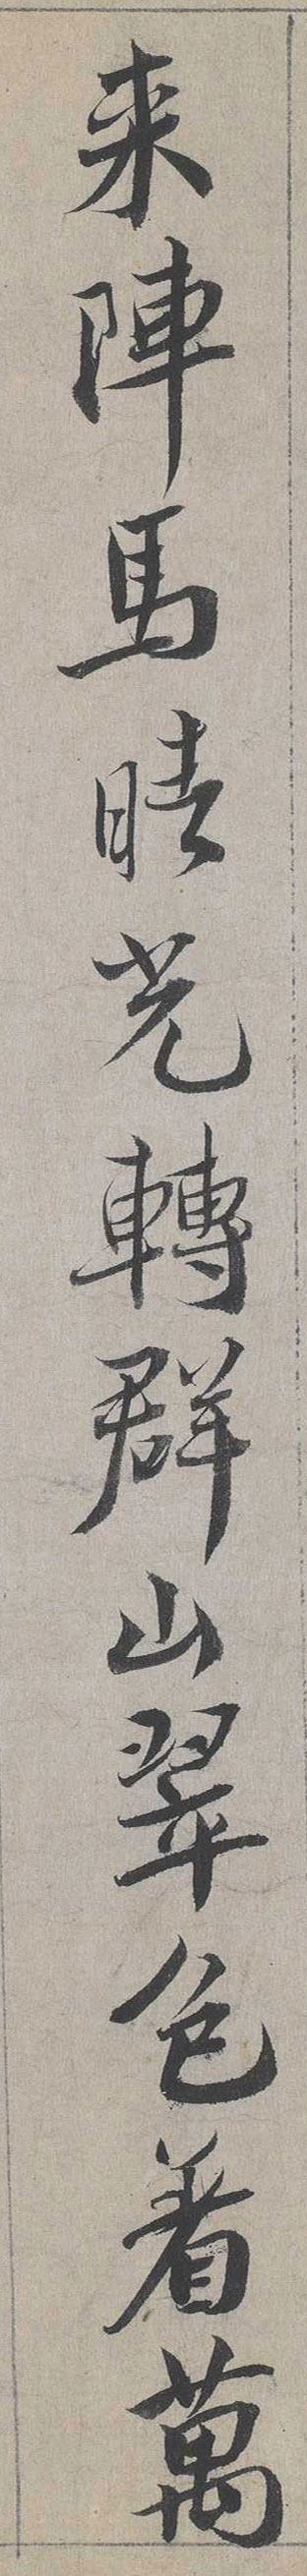 来陣馬晴光轉群山翠色着萬